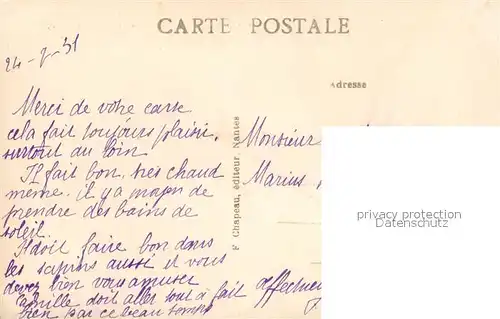 CARTE POSTALE
24-7-31
Adresse
Merci de votre carte
cela fait toujours plaisir,
surtout du loin
Il fait bon, très chaud
même. il y a moyen de
prendre des bains de
soleil.
Il doit faire bon dans
les sapins aussi et vous
devez bien vous amuser
Camille doit aller tout à fait
bien par ce beau temps
F. Chapeau, éditeur, Nantes
Monsieur
Marius
privacy protection
Datenschutz